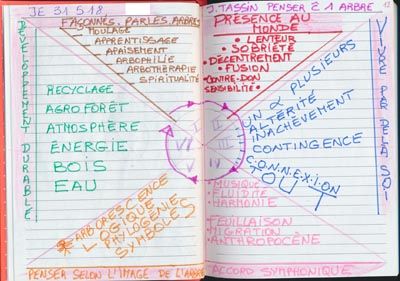 JE 31.5.18.
FAÇONNÉS PAR LES ARBRES
MOULAGE
APPRENTISSAGE
APAISEMENT
ARBOPHILIE
ARBOTHÉRAPIE
SPIRITUALITÉ
DÉVELOPPEMENT DURABLE
RECYCLAGE
AGROFORÊT
ATMOSPHÈRE
ÉNERGIE
BOIS
EAU
ARBORESCENCE
LOGIQUE
PHYLOGÉNIE
SYMBOLES
PENSER SELON L'IMAGE DE L'ARBRE
J. TASSIN PENSER È 1 ARBRE
12
PRÉSENCE AU
MONDE
• LENTEUR
• SOBRIÉTÉ
• DÉCENTREMENT
• FUSION
• CONTRE-DON
SENSIBILITÉ •
I
II
III
IV
V
VI
UN 2 PLUSIEURS
ALTÉRITÉ
INACHÈVEMENT
CONTINGENCE
C.O.N.N.E.X.I.O.N
TOUT
VIVRE PAR DELÀ SOI
• MUSIQUE
• FLUIDITÉ
• HARMONIE
• FEUILLAISON
• MIGRATION
• ANTHROPOCÈNE
ACCORD SYMPHONIQUE